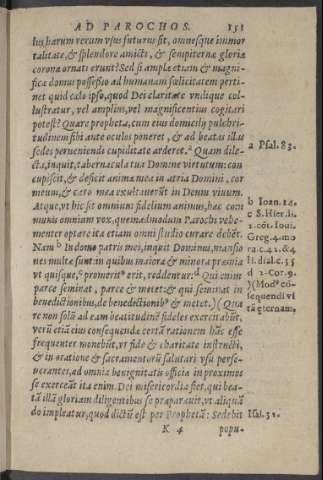 AD PAROCHOS. 151
lus, harum rerum vsus futurus sit, omnesque immor
talitate, & splendore amicti, & sempiternæ gloriæ
corona ornati erunt? Sed si ampla etiam & magni-
fica domus possessio ad humanam fœlicitatem perti-
net quid cælo ipso, quod Dei claritate vndique col-
lustratur, vel amplius, vel magnificentius cogitari
potest? Quare propheta, cum eius domicilij pulchri-
tudinem sibi ante oculos poneret, & ad beatas illas
sedes perueniendi cupiditate arderet. ᵃ Quam dile-
a Psal. 83.
cta, inquit, tabernacula tua Domine virtutum: con
cupiscit, & deficit anima mea in atria Domini. cor
meum, & caro mea exultauerũt in Deum viuum.
Atque, vt hic sit omnium fidelium animus, hæc com
b Ioan. 14.
munis omnium vox, quemadmodum Parochi vehe-
c S. Hier. li.
menter optare ita etiam omni studio curare debẽt.
2. cõt. Ioui.
Nam ᵇ In domo patris mei, inquit Dominus, mansio
Greg. 4. mo
nes multæ sunt in quibus maiora & minora præmia
ra. c. 42. &
vt quisque, ᶜ promerit⁹ erit, reddentur: ᵈ Qui enim
li. dial. c. 35
parce seminat, parce & metet: & qui seminat in
d 2. Cor. 9.
benedictionibus, de benedictionib⁹ & metet.)( Qua
)( Mod⁹ cõ-
sequendi vi
re non solũ ad eam beatitudinẽ fideles excitabũt,
tã æternam,
verũ etiã eius consequendæ certã rationem hãc esse
frequenter monebũt, vt fide & charitate instructi,
& in oratione & sacramentorũ salutari vsu perse-
uerantes, ad omnia benignitatis officia in proximos
se exerceãt ita enim. Dei misericordia fiet, qui bea-
tã illã gloriam diligentibus se præparauit, vt aliquã
do impleatur, quod dictũ est per Prophetã: Sedebit
Isal. 32.
K 4 popu-